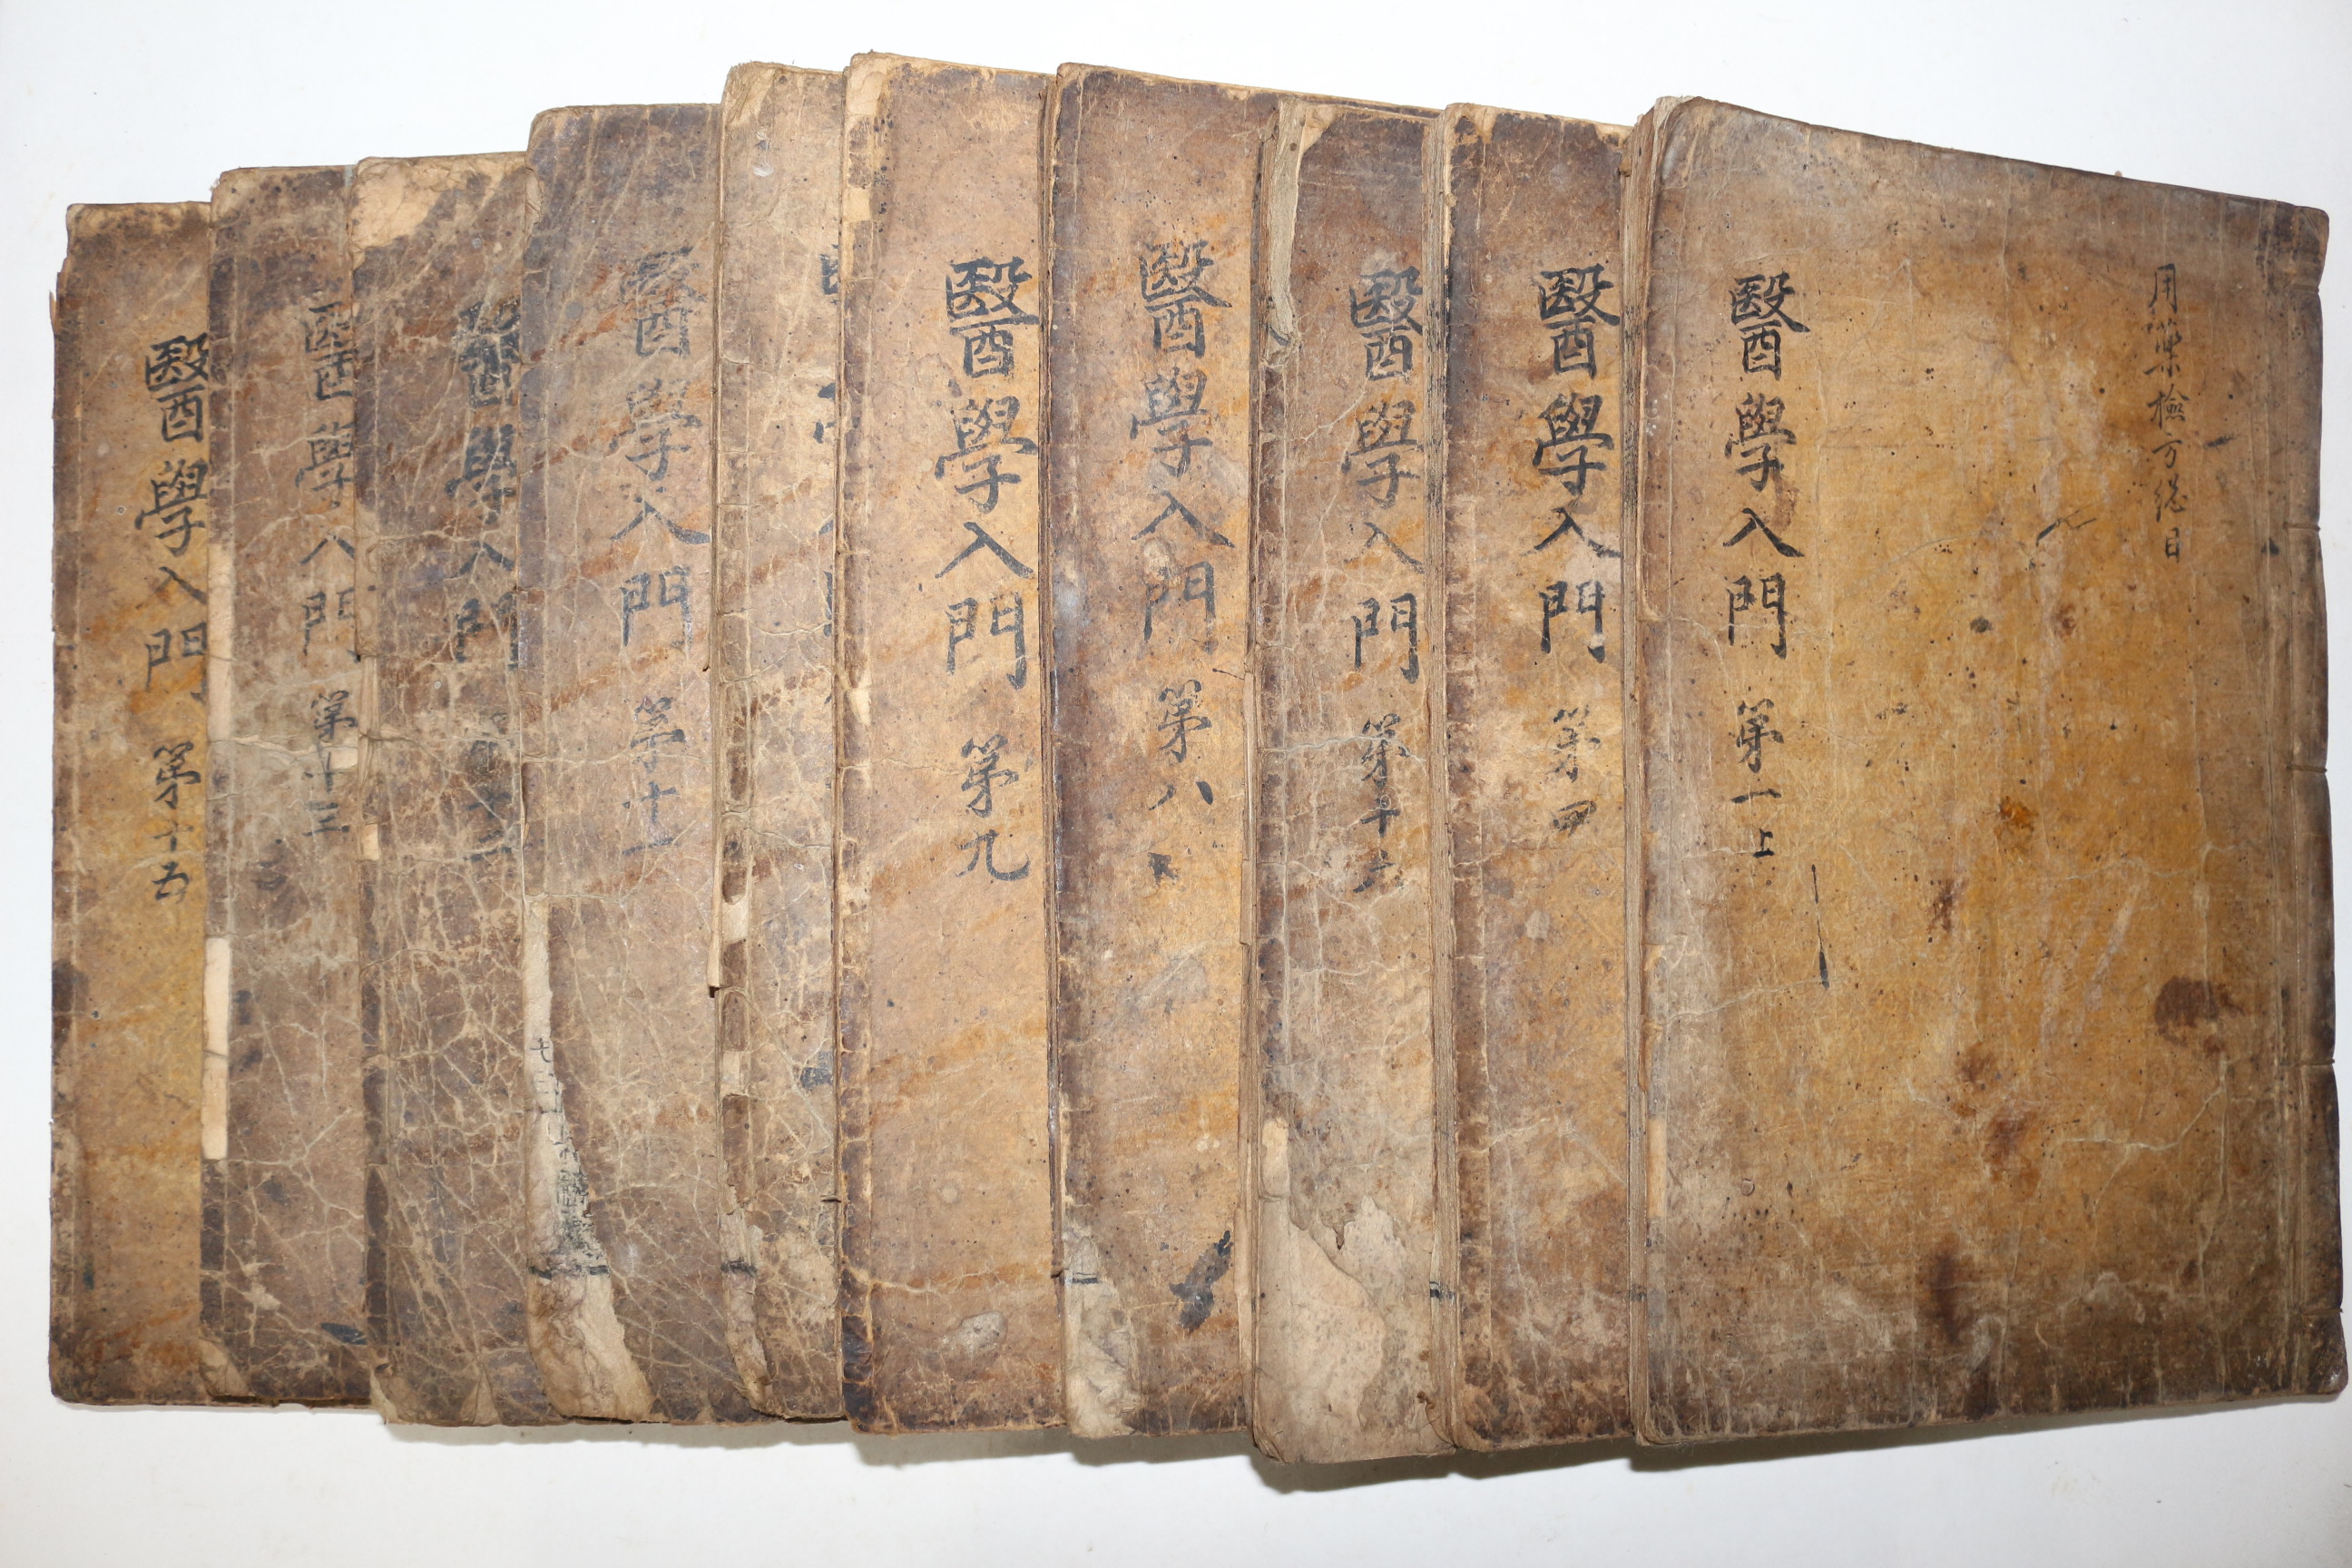 用藥檢方総目
醫學入門 第一上
醫學入門 第四
醫學入門 第十六
醫學入門 第八
醫學入門 第九
醫學入門 第十一
醫學入門 第十二
醫學入門 第十三
醫學入門 第十五